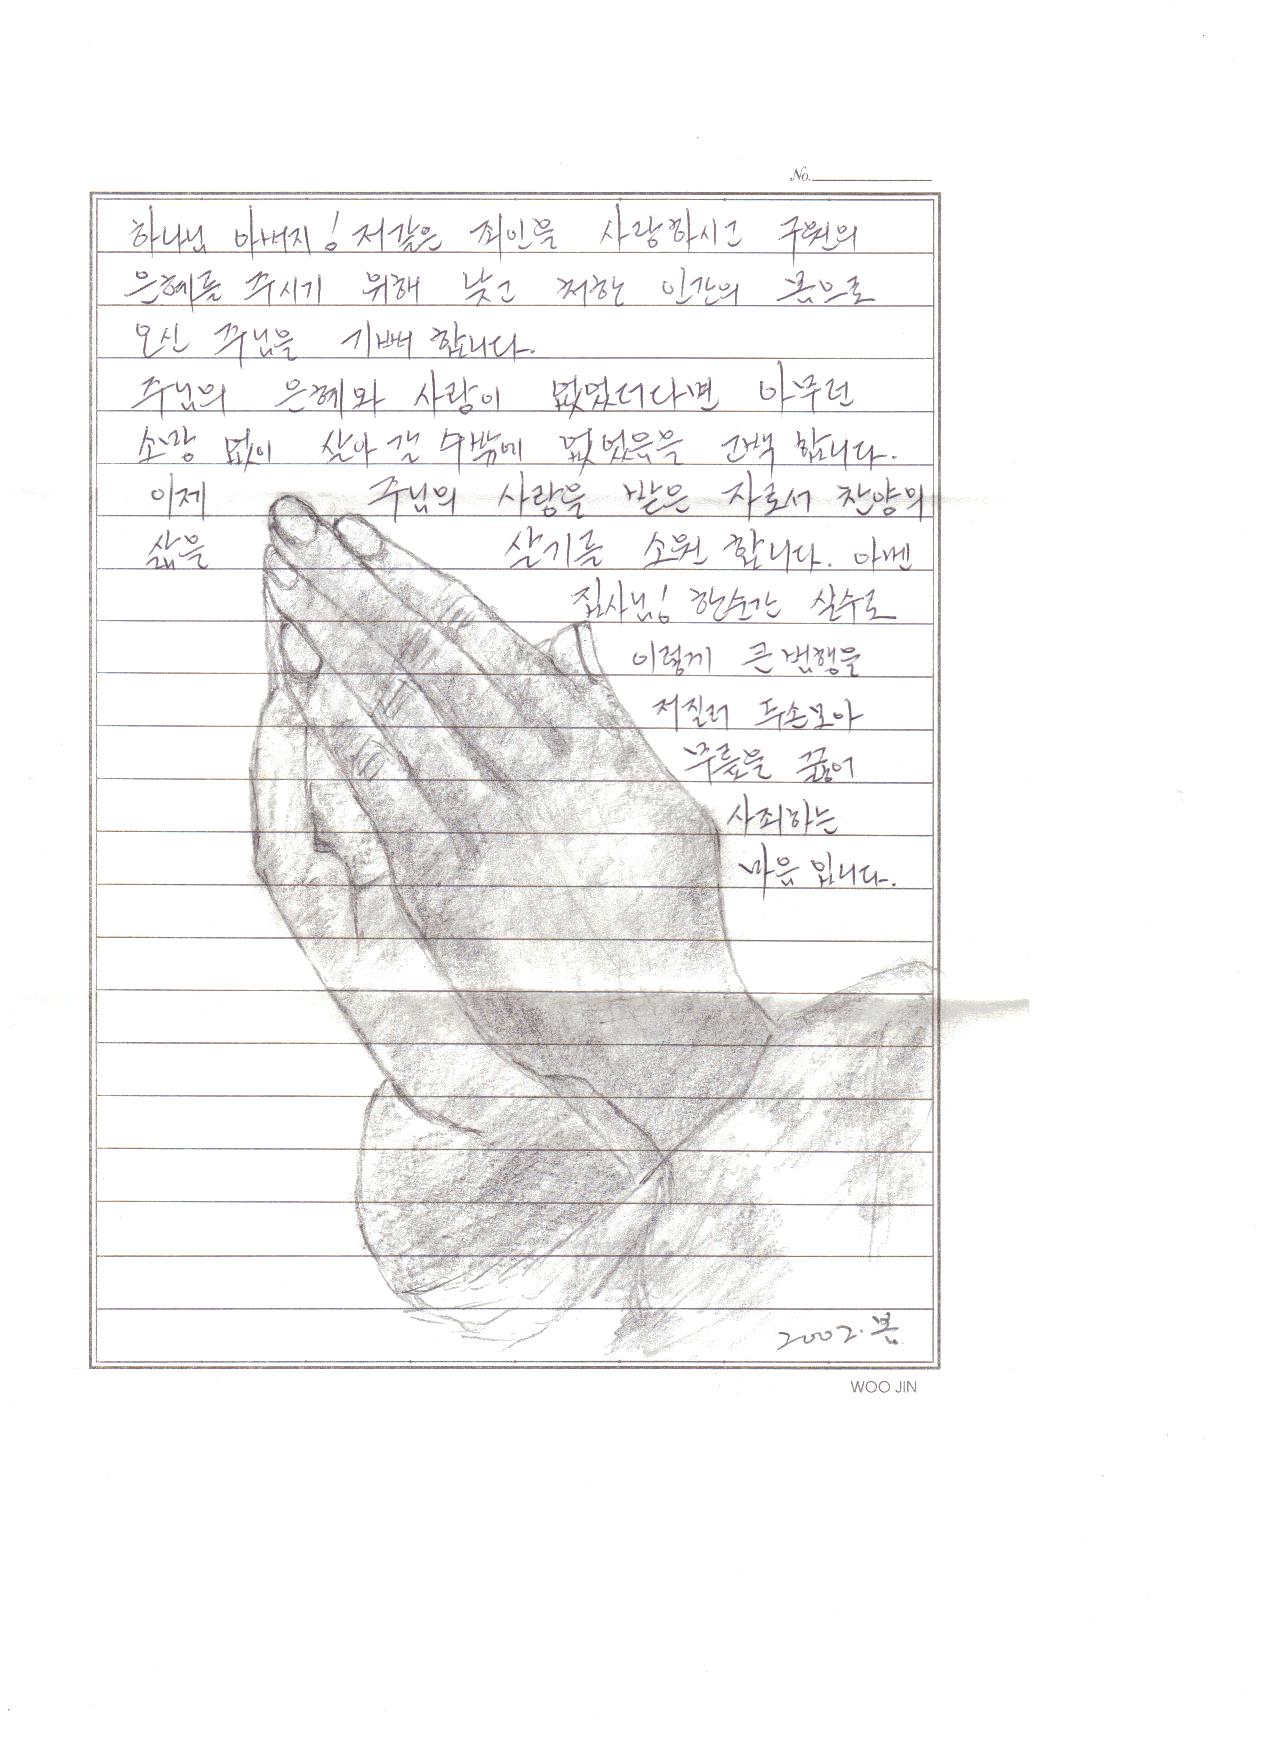 No.
하나님 아버지! 저같은 죄인을 사랑하시고 구원의
은혜를 주시기 위해 낮고 천한 인간의 몸으로
오신 주님을 기뻐 합니다.
주님의 은혜와 사랑이 없었더다면 아무런
소망 없이 살아 갈 수밖에 없었음을 고백 합니다.
이제 주님의 사랑을 받은 자로서 찬양의
삶을 살기를 소원 합니다. 아멘
집사님! 한순간 실수로
이렇게 큰 범행을
저질러 두손모아
무릎을 꿇어
사죄하는
마음 입니다.
2002.봄
WOO JIN